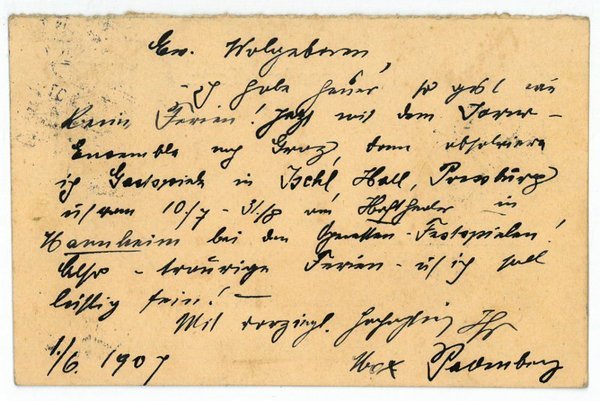 Ew. Wolgeboren,
Ich habe heuer so gut wie
keine Ferien! Jetzt mit dem
Ensemble nach Graz, dann absolviere
ich Gastspiele in Ischl, Hall, Pressburg
u. von 10/7 - 31/8 am Hoftheater in
Mannheim bei den Operetten-Festspielen!
Also - traurige Ferien - u. ich soll
lustig sein! -
Mit vorzügl. Hochachtung Ihr
1./6. 1907 Max Pallenberg